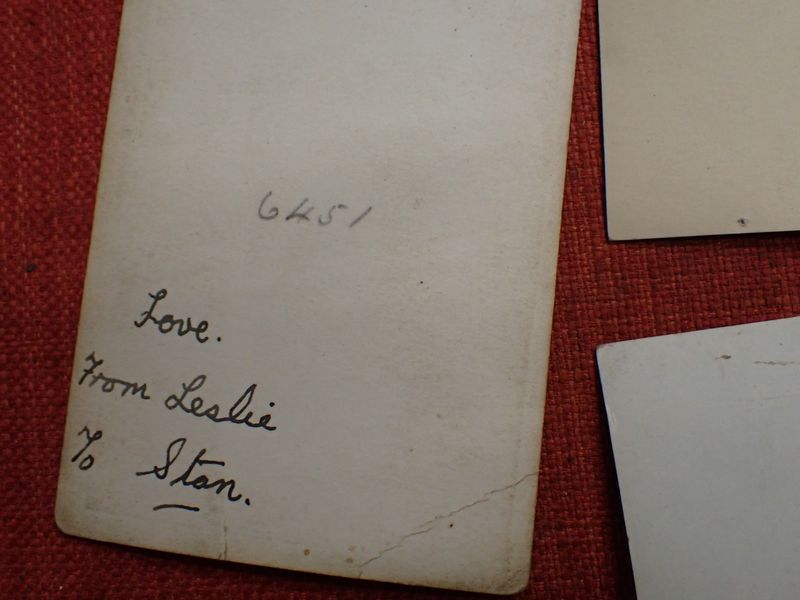 6451
Love.
From Leslie
To Stan.